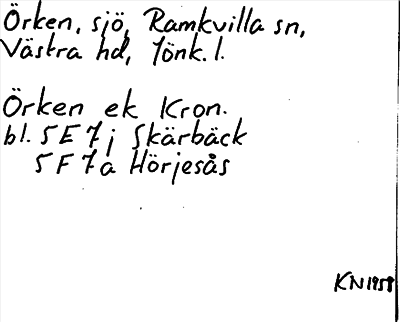 Örken, sjö, Ramkvilla sn,
Västra hd, Jönk. l.
Örken ek Kron.
bl. 5E7j Skärbäck
5F7a Hörjesås
KN1958